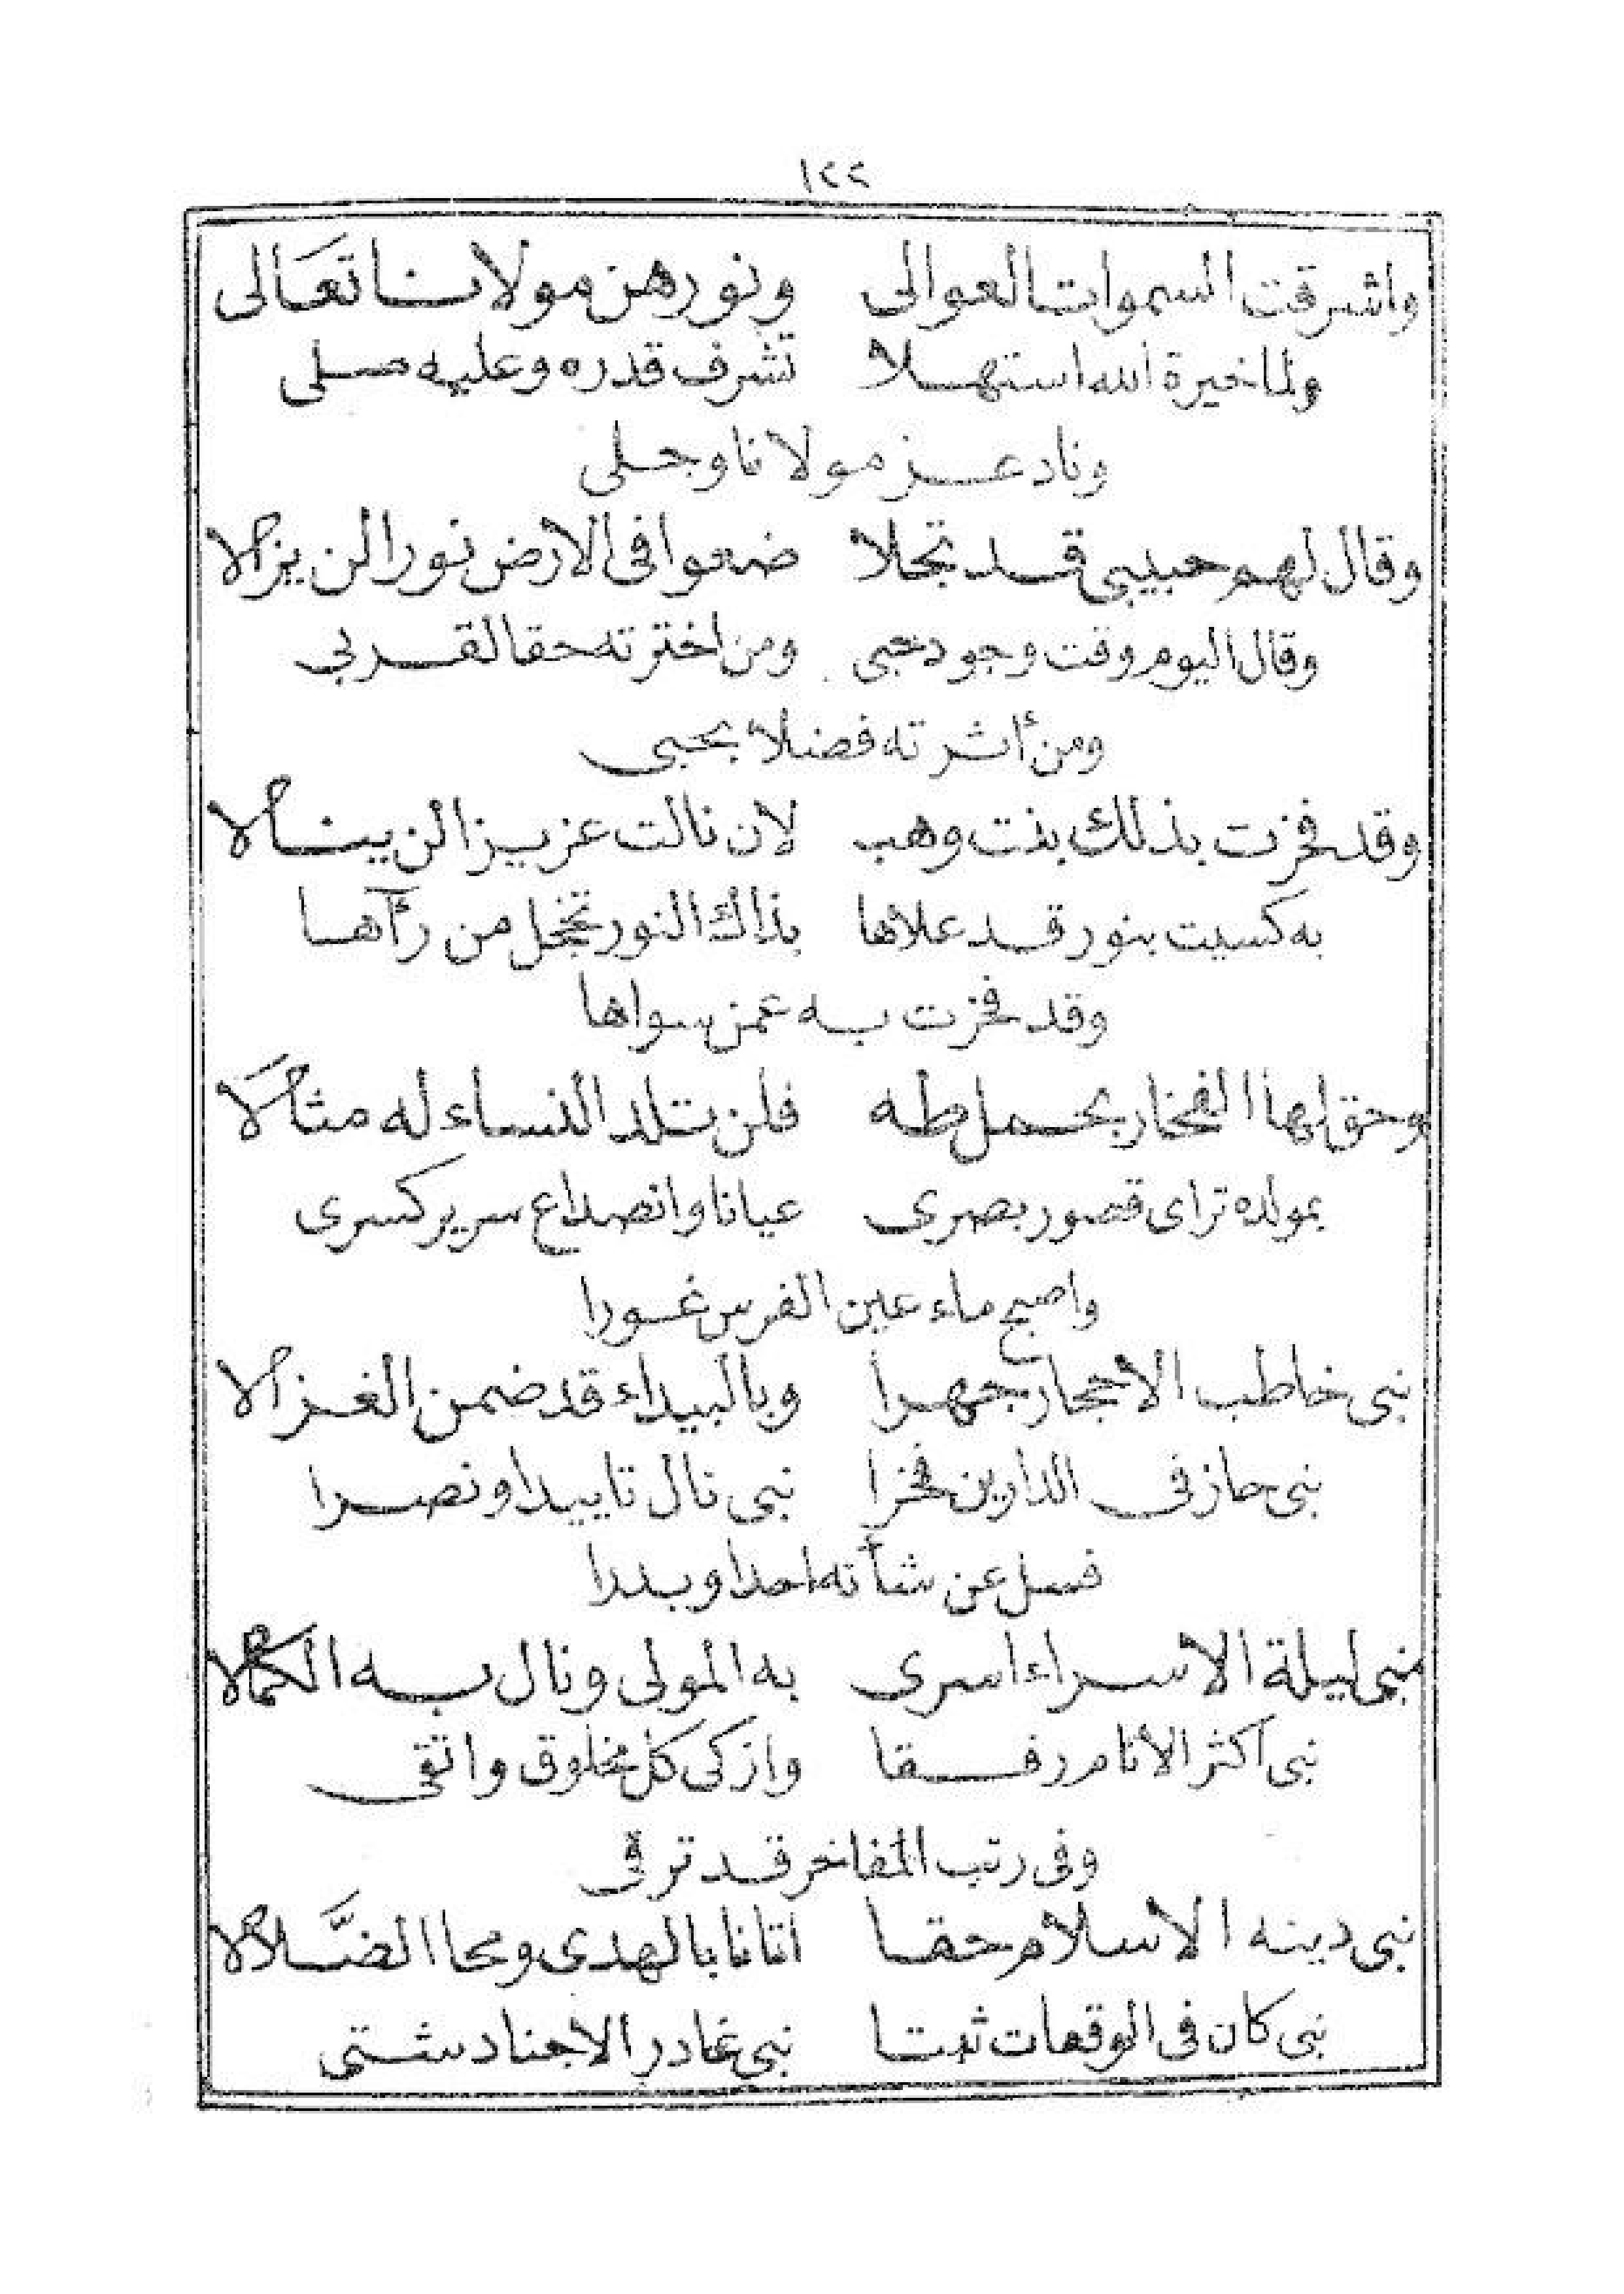 ١٢٢
واشرقت السموات العوالى ونورهن مولانا تعَالى
ولما خيرة الله استهلا تشرف قدره وعليه صلى
وناد عز مولانا وجلى
وقال لهم حبيبى قد تجلا ضعوا فى الارض نورا لن يزالا
وقال اليوم وقت وجود حبى ومن اخترته حقا لقربى
ومن أثرته فضلا بحبى
وقد فخرت بذلك بنت وهب لان نالت عزيزا لن ينالا
به كسيت بنور قد علاها بذاك النور تخجل من رأها
وقد فخرت به عمن سواها
وحق لها الفخار بحمل طه فلن تلد النساء له مثالا
بمولده تراى قصور بصرى عيانا وانصداع سرير كسرى
واصبح ماء عين الفرس غورا
نبى خاطب الاحجار جهرا وبالبيداء قد ضمن الغزالا
نبى حاز فى الدارين فخرا نبى نال تاييدا ونصرا
فسل عن شأنه احدا وبدرا
نبى ليلة الاسراء اسرى به المولى ونال به الكمالا
نبى اكثر الانام رفقا وازكى كل مخلوق واتقى
وفى رتب المفاخر قد ترقى
نبى دينه الاسلام حقا اتانا بالهدى ومحا الضَّلالا
نبى كان فى الوقعات ثبتا نبى غادر الاجناد شتى